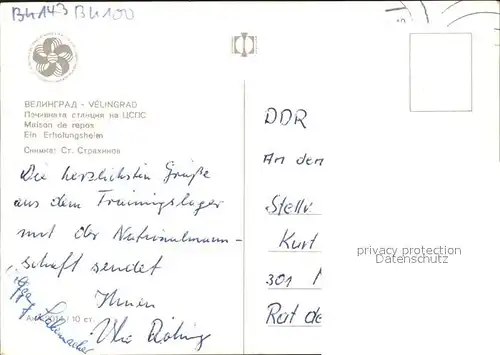 Bh143 Bh100
ВЕЛИНГРАД - VÉLINGRAD
Почивната станция на ЦСПС
Maison de repos
Ein Erholungsheim
Снимка: Ст. Страхинов
Die herzlichsten Grüße
aus dem Trainingslager
mit der Nationalmann-
schaft sendet
Ihnen
10 ст.
DDR
An den
Stellv
Kurt
301
Rat de
privacy protection
Datenschutz